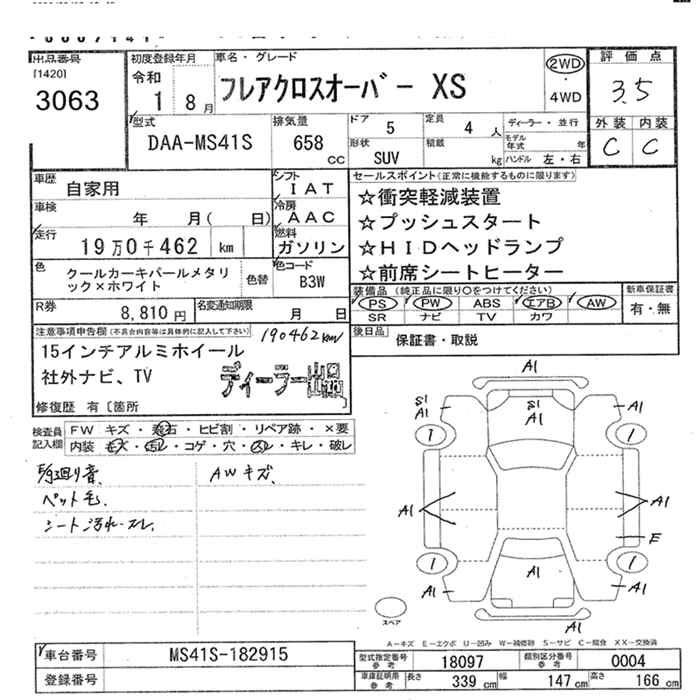 出品番号
[1420]
3063
初度登録年月
令和
1 8月
車名・グレード
フレアクロスオーバー XS
2WD
・
4WD
評価点
3.5
外装 内装
C C
型式
DAA-MS41S
排気量
658
CC
ドア
5
定員
4 人
ディーラー・並行
形状
SUV
積載
kg
モデル年式 年
ハンドル 左・右
車歴
自家用
シフト
IAT
車検
年 月( 日)
冷房
AAC
走行
19万0千462 km
燃料
ガソリン
色
クールカーキパールメタリ
ック×ホワイト
色替
色コード
B3W
R券
8,810 円
名変通知期限
月 日
セールスポイント(正常に機能するものに限ります)
☆衝突軽減装置
☆プッシュスタート
☆HIDヘッドランプ
☆前席シートヒーター
装備品(純正品に限り○をつけてください)
PS PW ABS エアB AW
SR ナビ TV カワ
新車保証書
有・無
後日品
保証書・取説
注意事項申告欄(不具合内容等は具体的に記入して下さい)
190462km
15インチアルミホイール
社外ナビ、TV
ディーラー出品
修復歴 有〔箇所
検査員
記入欄
FW キズ・飛石・ヒビ割・リペア跡・×要
内装 キズ・汚れ・コゲ・穴・スレ・キレ・破レ
ペット毛
シート汚れ・スレ
AWキズ
A1
S1
A1
S1
A1
S1
A1
1
1
A1
A1
E
1
1
A1
A1
A1
A1
スペア
A-キズ E-エクボ U-凹み W-補修跡 S-サビ C-腐食 XX-交換済
車台番号
MS41S-182915
登録番号
型式指定番号
参考
18097
類別区分番号
参考
0004
車庫証明用
参考
長さ
339 cm
幅
147 cm
高さ
166 cm